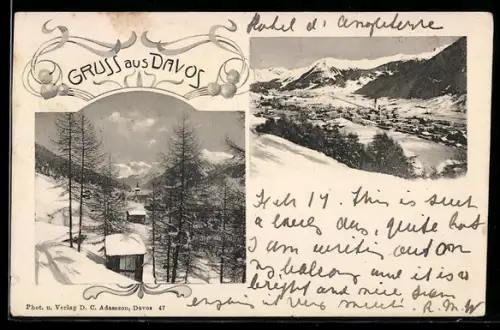 Hotel d'Angleterre
GRUSS AUS DAVOS
Feb 19. This is such
a lovely day, quite hot
I am writing out on
my balcony and it is so
bright and nice
enjoying it very much. R. M. W
Phot. u. Verlag D. C. Adamson, Davos 47